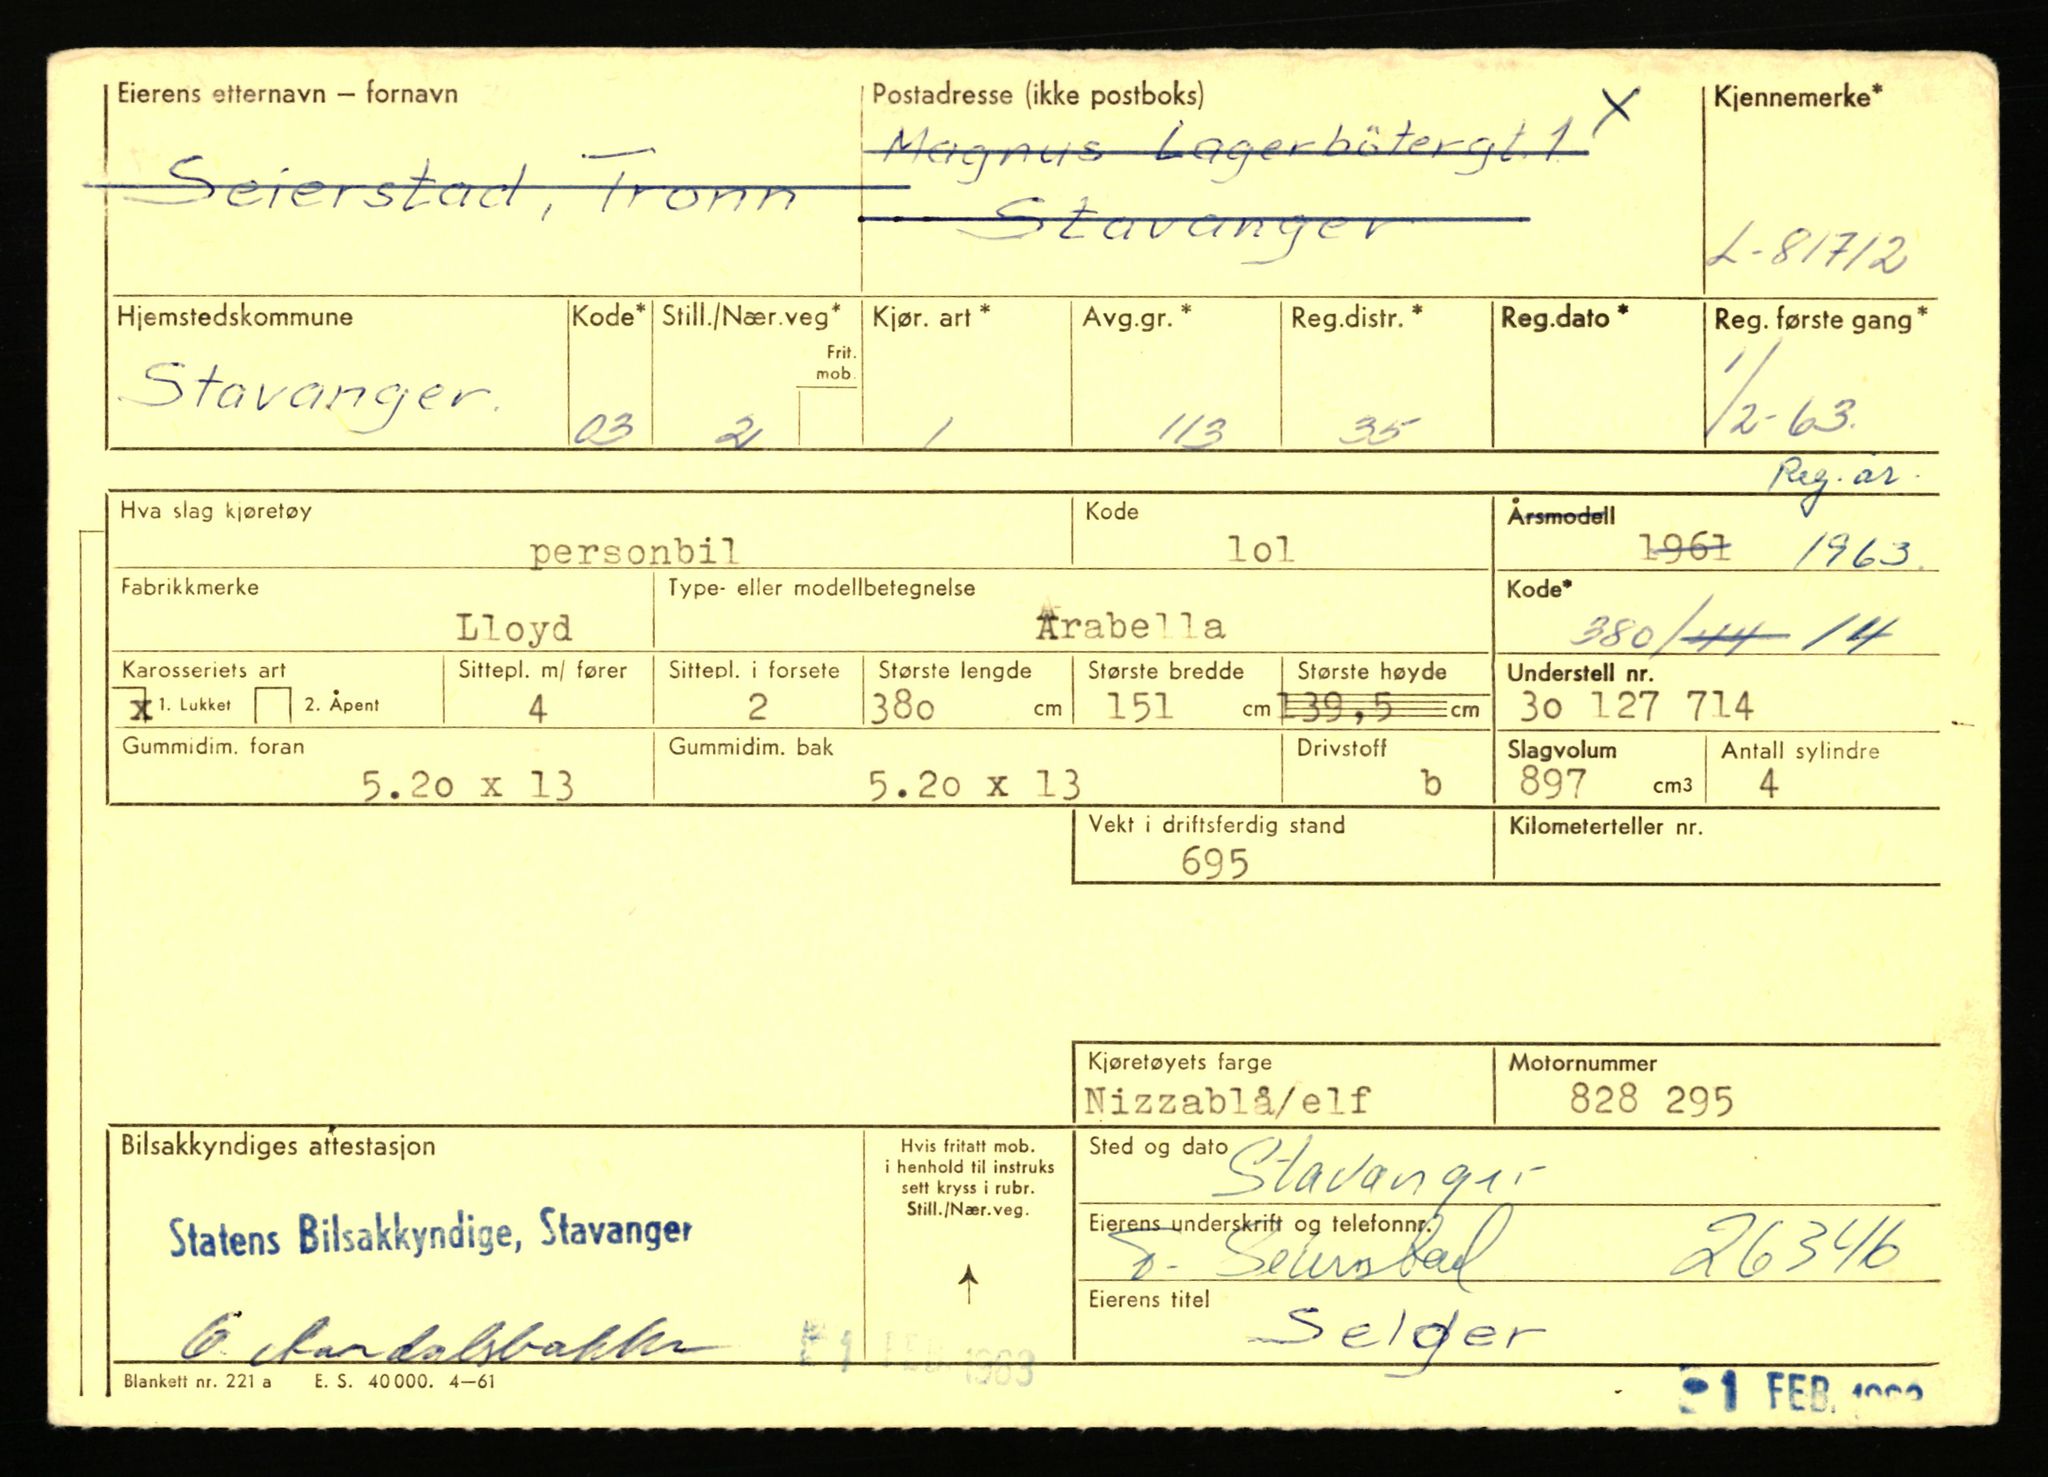 Eierens etternavn — fornavn
Postadresse (ikke postboks)
X
Kjennemerke*
Seierstad, Tronn
Magnus Lagerbötergt. 1
Stavanger
L-81712
Hjemstedskommune
Kode*
Still./Nær.veg*
Frit.
mob.
Kjør. art *
Avg.gr. *
Reg.distr. *
Reg.dato *
Reg. første gang *
Stavanger.
03
2
1
113
35
1/2-63.
Reg. år.
Hva slag kjøretøy
personbil
Kode
lol
Årsmodell
1961 1963.
Fabrikkmerke
Lloyd
Type- eller modellbetegnelse
Arabella
Kode*
380/44 14
Karosseriets art
x 1. Lukket
2. Åpent
Sittepl. m/ fører
4
Sittepl. i forsete
2
Største lengde
380 cm
Største bredde
151 cm
Største høyde
139,5 cm
Understell nr.
30 127 714
Gummidim. foran
5.20 x 13
Gummidim. bak
5.20 x 13
Drivstoff
b
Slagvolum
897 cm3
Antall sylindre
4
Vekt i driftsferdig stand
695
Kilometerteller nr.
Kjøretøyets farge
Nizzablå/elf
Motornummer
828 295
Bilsakkyndiges attestasjon
Statens Bilsakkyndige, Stavanger
Hvis fritatt mob.
i henhold til instruks
sett kryss i rubr.
Still./Nær.veg.
Sted og dato
Stavanger
Eierens underskrift og telefonnr.
T. Seierstad 26346
Eierens titel
Selger
1 FEB. 1963
Blankett nr. 221 a E. S. 40 000. 4—61
1 FEB. 1963